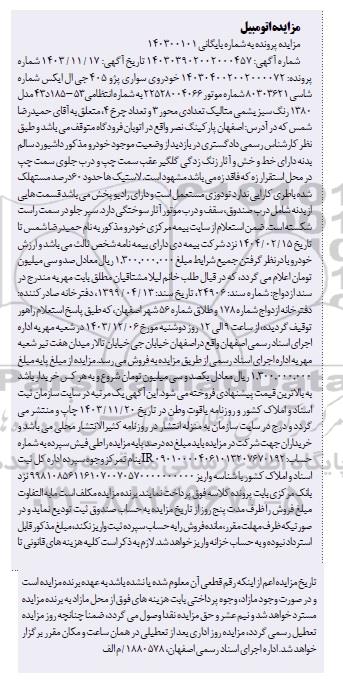 مزایده اتومبیل
مزایده پرونده به شماره بایگانی ۱۴۰۳۰۰۱۰۱
شماره آگهی: ۱۴۰۳۰۳۹۰۲۰۰۲۰۰۰۴۵۷ تاریخ آگهی: ۱۴۰۳/۱۱/۱۷ شماره
پرونده: ۱۴۰۳۰۴۰۰۲۰۰۲۰۰۰۰۷۲ خودروی سواری پژو ۴۰۵ جی ال ایکس شماره
شاسی ۸۰۳۰۳۶۲۱ شماره موتور ۲۲۵۲۸۰۰۴۰۶۶ به شماره انتظامی ۵۳-۱۸۵د۴۳ مدل
۱۳۸۰ رنگ سبز یشمی متالیک تعدادی محور ۲ و تعداد چرخ ۴، متعلق به آقای حمیدرضا
شمس که در آدرس: اصفهان پارکینگ نصر واقع در اتوبان فرودگاه متوقف می باشد و طبق
نظر کارشناس رسمی دادگستری در بازدید از وضعیت موجود خودرو مذکور داشبورد سالم
بدنه دارای خط و خش و آثار رنگ زدگی گلگیر عقب سمت چپ و درب جلوی سمت چپ
در محل استقرار زه که فاقد زه می باشد مشهود است. لاستیک ها حدود ۶۰ درصد مستهلک
شده باطری کارایی ندارد تودوزی مستعمل است و دارای رادیو پخش می باشد قسمت هایی
از بدنه شامل درب صندوق، سقف و درب موتور آثار سوختگی دارد. سپر جلو در سمت راست
شکسته است. ضمن استعلام از سایت بیمه مرکزی خودرو مذکور به نام حمیدرضا شمس تا
تاریخ ۱۴۰۴/۰۲/۱۵ نزد شرکت بیمه دی دارای بیمه نامه شخص ثالث می باشد و ارزش
خودرو با در نظر گرفتن جمیع شرایط مبلغ ۱,۳۰۰,۰۰۰,۰۰۰ ریال معادل صد و سی میلیون
تومان اعلام می گردد، که در قبال طلب خانم لیلا مشتاقیان مطلق بابت مهریه مندرج در
سند ازدواج: شماره سند: ۲۴۹۰۶، تاریخ سند: ۱۳۹۹/۰۴/۱۳، دفترخانه صادر کننده:
دفترخانه ازدواج شماره ۱۷۸ و طلاق شماره ۵۶ شهر اصفهان، که طبق پاسخ استعلام راهور
توقیف گردیده، از ساعت ۹ الی ۱۲ روز دوشنبه مورخ ۱۴۰۳/۱۲/۰۶ در شعبه مهریه اداره
اجرای اسناد رسمی اصفهان واقع در اصفهان خیابان جی خیابان تالار میدان هفت تیر شعبه
مهریه اداره اجرای اسناد رسمی از طریق مزایده به فروش می رسد. مزایده از مبلغ پایه مبلغ
۱,۳۰۰,۰۰۰,۰۰۰ ریال معادل یکصد و سی میلیون تومان شروع و به هر کس خریدار باشد
به بالاترین قیمت پیشنهادی فروخته می شود. این آگهی یک مرتبه در سایت سازمان ثبت
اسناد و املاک کشور و روزنامه یاقوت وطن در تاریخ ۱۴۰۳/۱۱/۲۰ چاپ و منتشر می
گردد و درج در سایت سازمان به منزله انتشار در روزنامه کثیرالانتشار محلی می باشد و
خریداران جهت شرکت در مزایده باید مبلغ ده درصد پایه مزایده را طی فیش سپرده به شماره
بانک مرکزی بابت پرونده کلاسه فوق پرداخت نمایند. برنده مزایده مکلف است مابه التفاوت
مبلغ فروش را ظرف مدت پنج روز از تاریخ مزایده به حساب صندوق ثبت تودیع نماید و در
صورتیکه ظرف مهلت مقرر، مانده فروش را به حساب سپرده ثبت واریز نکند، مبلغ مذکور قابل
استرداد نبوده و به حساب خزانه واریز خواهد شد. لازم به ذکر است کلیه هزینه های قانونی تا
تاریخ مزایده اعم از اینکه رقم قطعی آن معلوم شده یا نشده باشد به عهده برنده مزایده است
و در صورت وجود مازاد، وجوه پرداختی بابت هزینه های فوق از محل مازاد به برنده مزایده
مسترد خواهد شد و نیم عشر و حق مزایده نقدا وصول می گردد، ضمنا چنانچه روز مزایده
تعطیل رسمی گردد، مزایده روز اداری بعد از تعطیلی در همان ساعت و مکان مقرر برگزار
خواهد شد. اداره اجرای اسناد رسمی اصفهان، ۱۸۸۰۵۷۸/م الف